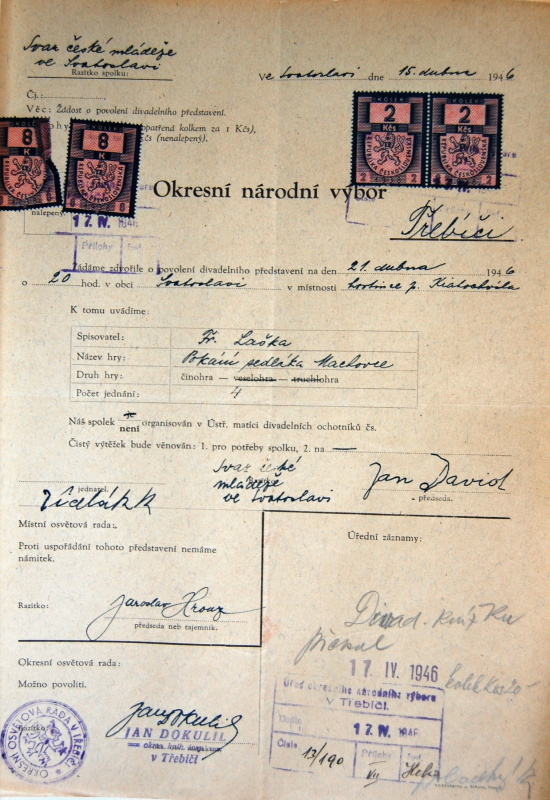 Svaz české mládeže
ve Svatoslavi
Razítko spolku:
Ve Svatoslavi dne 15. dubna 1946
Čj.:
Věc: Žádost o povolení divadelního představení.
opatřená kolkem za 1 Kčs),
čs (nenalepený).
KOLEK
8
K
REPUBLIKA ČESKOSLOVENSKÁ
8 8
KOLEK
8
K
REPUBLIKA ČESKOSLOVENSKÁ
8 8
KOLEK
2
Kčs
REPUBLIKA ČESKOSLOVENSKÁ
2 2
KOLEK
2
Kčs
REPUBLIKA ČESKOSLOVENSKÁ
2 2
Okresní národní výbor
nalepeny.
17. IV. 1946
Přílohy
17. IV.
Třebíči
Žádáme zdvořile o povolení divadelního představení na den 21. dubna 1946
o 20 hod. v obci Svatoslavi v místnosti hostince p. Kratochvíla
K tomu uvádíme:
Spisovatel: Fr. Laška
Název hry: Pokání sedláka Machovce
Druh hry: činohra — veselohra — truchlohra
Počet jednání: 4
Náš spolek je není organisován v Ústř. matici divadelních ochotníků čs.
Čistý výtěžek bude věnován: 1. pro potřeby spolku, 2. na —
Svaz české
mládeže
ve Svatoslavi
Jan David
jednatel.
předseda.
Místní osvětová rada:
Proti uspořádání tohoto představení nemáme
námitek.
Úřední záznamy:
Razítko:
Jaroslav
předseda neb tajemník.
Divad.
17 IV. 1946
Okresní osvětová rada:
Možno povoliti.
OKRESNÍ OSVĚTOVÁ RADA V TŘEBÍČI
Razítko:
Jan Dokulil
JAN DOKULIL
okres. knih. inspektor
v Třebíči
Úřad okresního národního výboru
v Třebíči.
Došlo
17. IV. 1946
Číslo 13/190
Přílohy